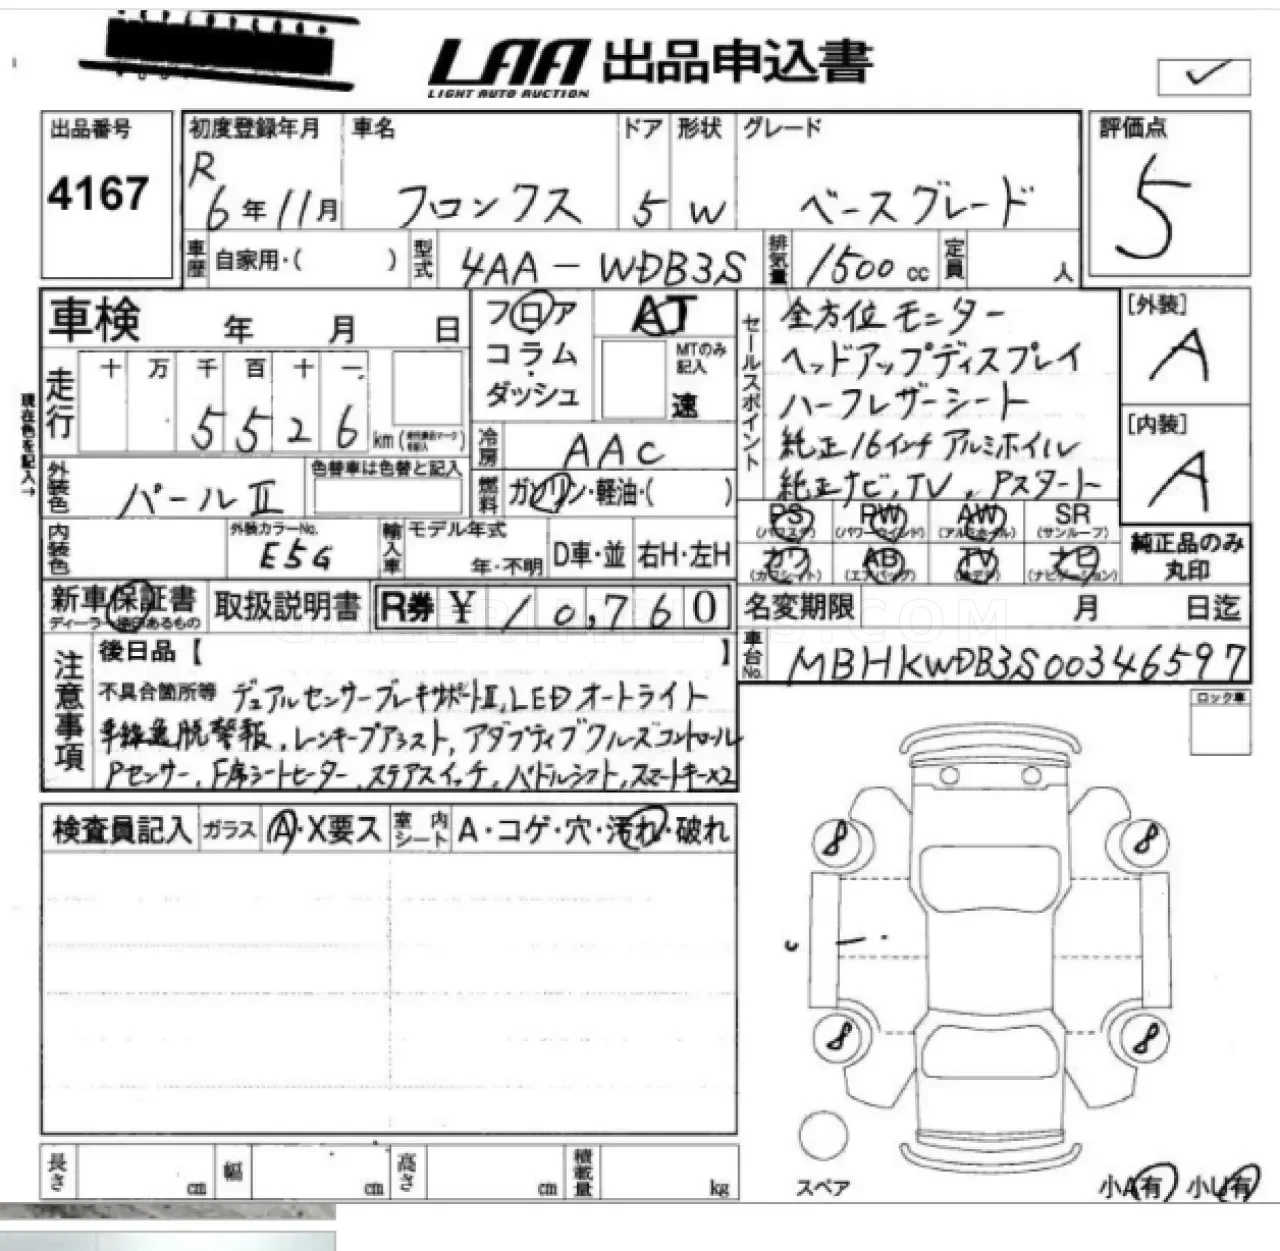 LAA 出品申込書
LIGHT AUTO AUCTION
出品番号
4167
初度登録年月
R
6年11月
車名
フロンクス
ドア
5
形状
W
グレード
ベースグレード
評価点
5
車歴
自家用・( )
型式
4AA-WDB3S
排気量
1500 cc
定員
人
車検 年 月 日
フロア
コラム
・
ダッシュ
AT
MTのみ記入
速
セールスポイント
全方位モニター
ヘッドアップディスプレイ
ハーフレザーシート
純正16インチアルミホイル
純正ナビ,TV,Pスタート
[外装]
A
[内装]
A
現在色を記入→
走行
十 万 千 百 十 一
5 5 2 6 km
冷房
AAC
外装色
パールⅡ
色替車は色替と記入
燃料
ガソリン・軽油・( )
PS PW AW SR
(パワステ) (パワーウインド) (アルミホイール) (サンルーフ)
カワ AB TV ナビ
(カワシート) (エアバッグ) (ナビゲーション)
純正品のみ
丸印
内装色
外装カラーNo.
E5G
輸入車
モデル年式
年・不明
D車・並
右H・左H
新車保証書
ディーラー捺印あるもの
取扱説明書
R券 ¥10,760
名変期限 月 日迄
車台No.
MBHKWDB3S00346597
注意事項
後日品【 】
不具合箇所等 デュアルセンサーブレーキサポートⅡ,LEDオートライト
車線逸脱警報,レーンキープアシスト,アダプティブクルーズコントロール
Pセンサー,F席シートヒーター,ステアスイッチ,パドルシフト,スマートキー×2
ロック車
検査員記入
ガラス
A・X要ス
室内シート
A・コゲ・穴・汚れ・破れ
8 8
8 8
スペア
長さ cm
幅 cm
高さ cm
積載量 kg
小A有 小U有